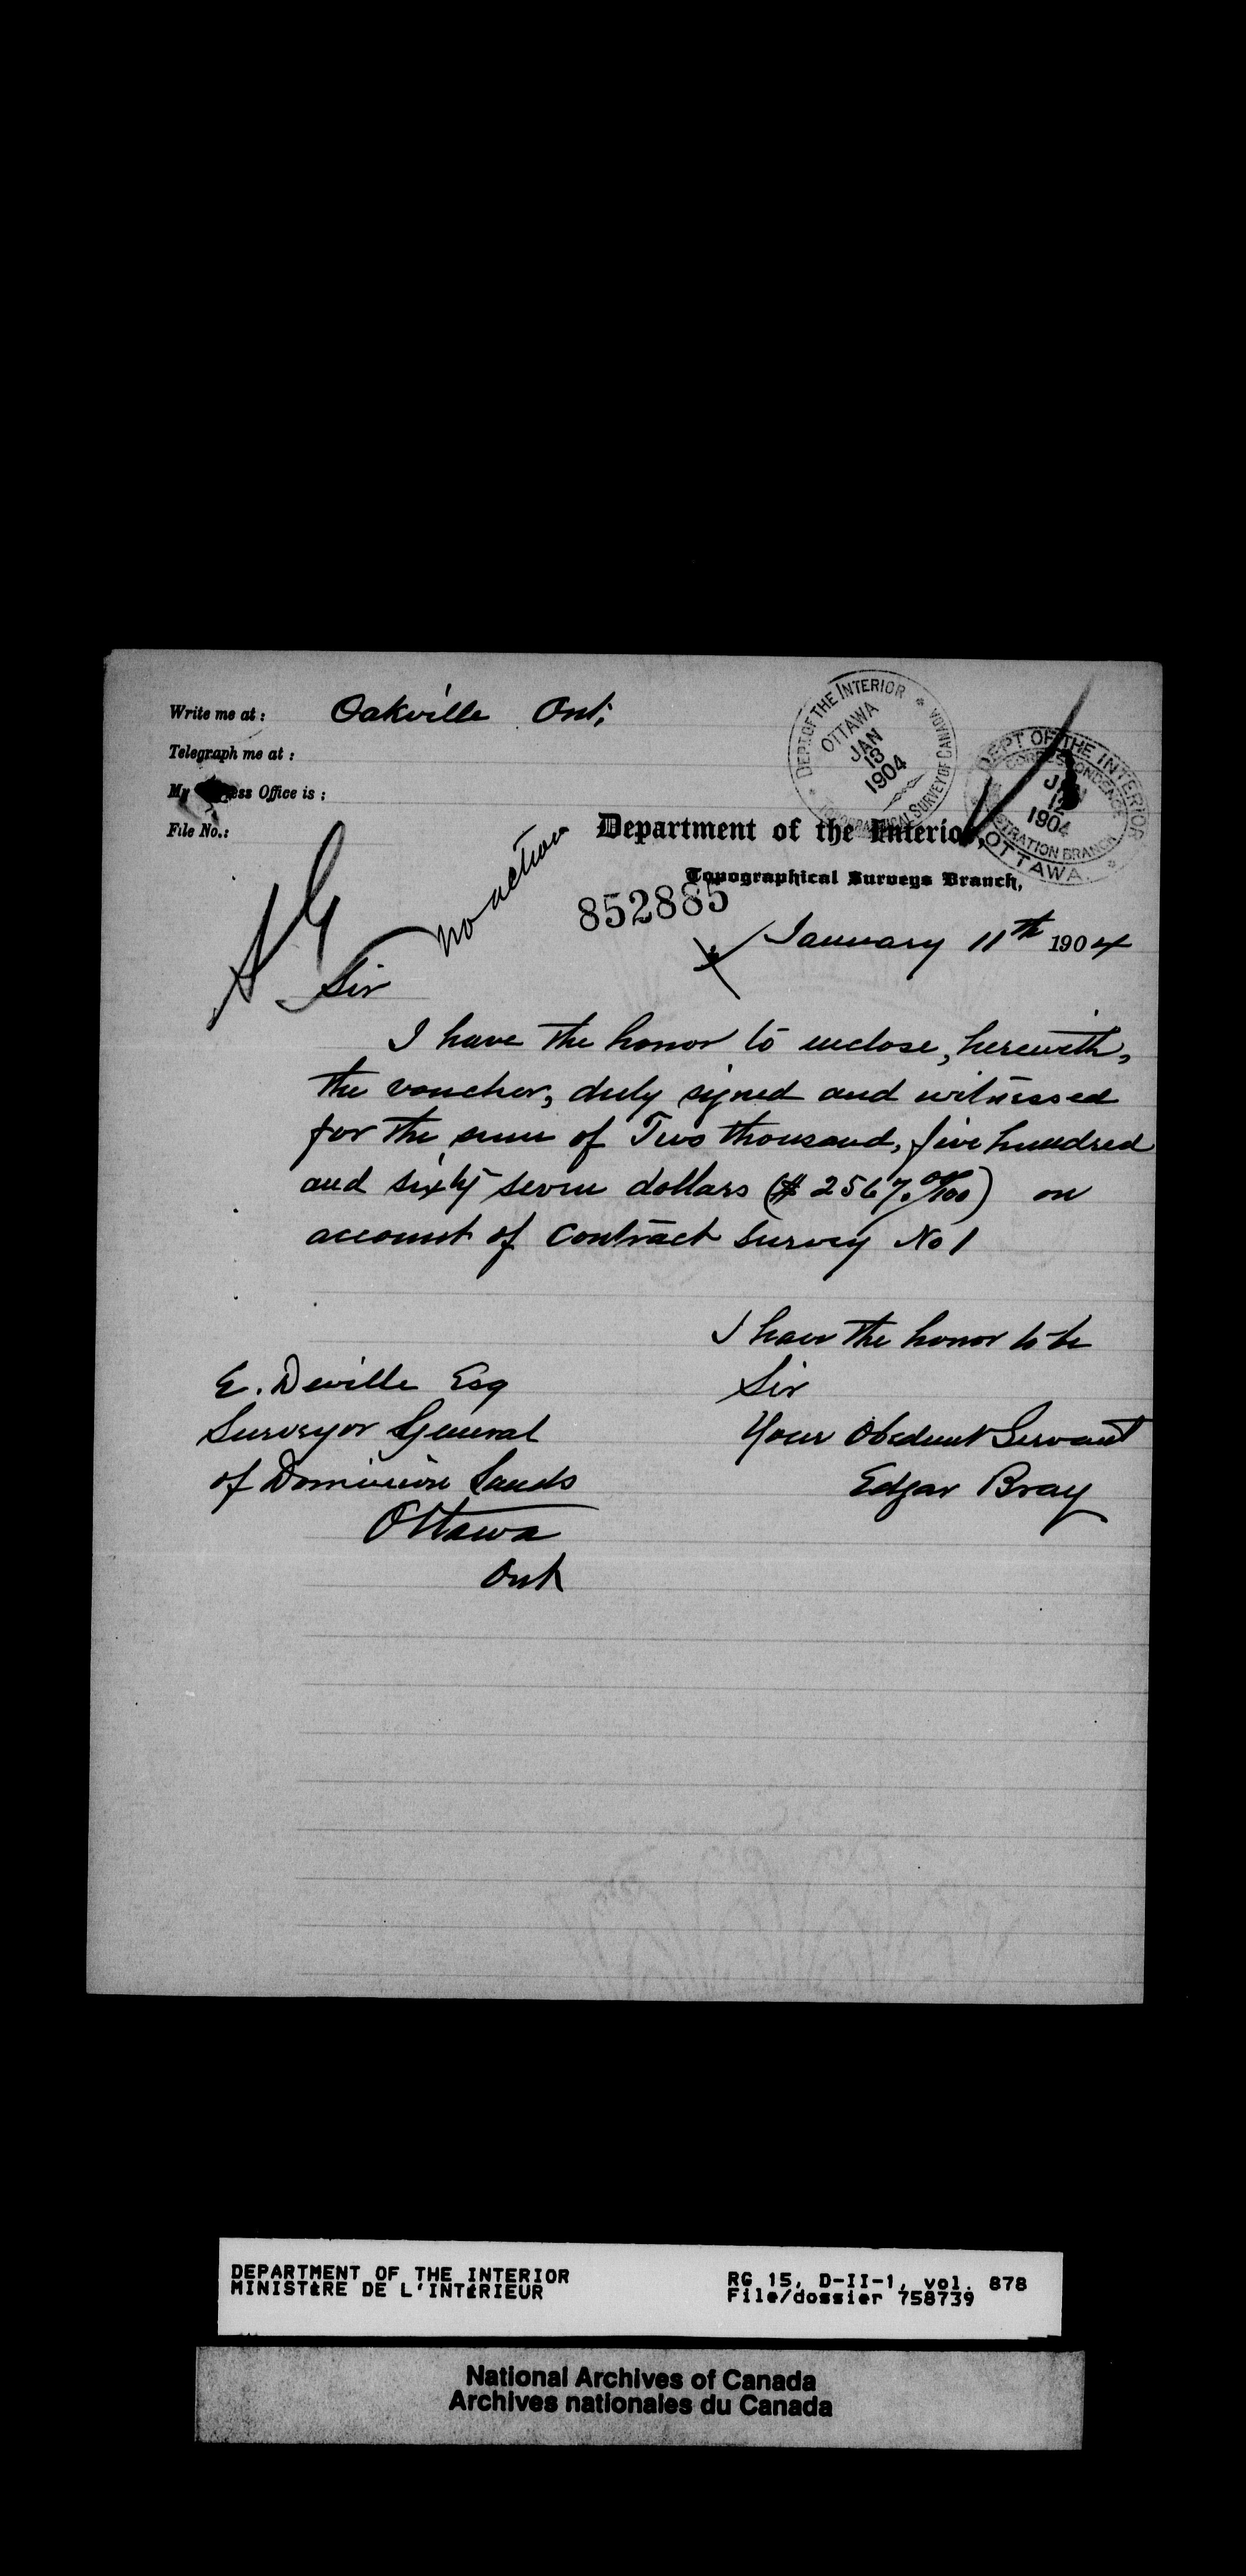 Write me at: Oakville Ont;
Telegraph me at:
My ess Office is:
File No.:
DEPT. OF THE INTERIOR
OTTAWA
JAN
13
1904
TOPOGRAPHICAL SURVEY OF CANADA
DEPT OF THE INTERIOR
CORRESPONDENCE
JAN
12
1904
REGISTRATION BRANCH
OTTAWA
Department of the Interior,
Topographical Surveys Branch,
no action
852885
January 11th 1904
Sir
I have the honor to enclose, herewith,
the voucher, duly signed and witnessed
for the sum of Two thousand, five hundred
and sixty seven dollars ($ 2567.00/100) on
account of Contract Survey No 1
I have the honor to be
Sir
Your Obedient Servant
Edgar Bray
E. Deville Esq
Surveyor General
of Dominion Lands
Ottawa
Ont
DEPARTMENT OF THE INTERIOR
MINISTÈRE DE L'INTÉRIEUR
RG 15, D-II-1, vol. 878
File/dossier 758739
National Archives of Canada
Archives nationales du Canada